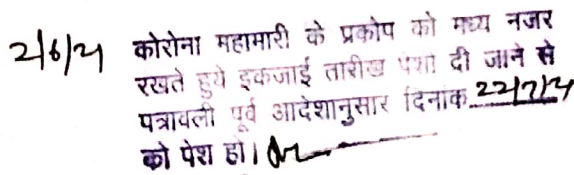 2/6/21 कोरोना महामारी के प्रकोप को मध्य नजर
रखते हुये इकजाई तारीख पेशी दी जाने से
पत्रावली पूर्व आदेशानुसार दिनांक 22/7/21
को पेश हो।